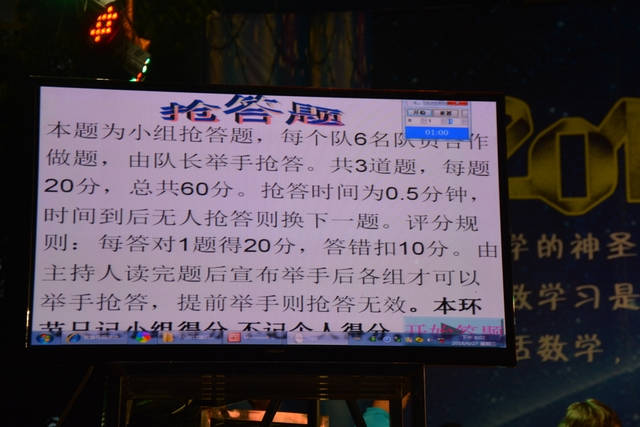 抢答题
本题为小组抢答题，每个队6名队员合作
做题，由队长举手抢答。共3道题，每题
20分，总共60分。抢答时间为0.5分钟，
时间到后无人抢答则换下一题。评分规
则：每答对1题得20分，答错扣10分。由
主持人读完题后宣布举手后各组才可以
举手抢答，提前举手则抢答无效。本环
节只记小组得分 不记个人得分
开始答题
01:00
201
学的神圣
数学习是
活数学